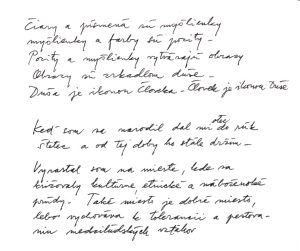 Čiary a písmená sú myšlienky
myšlienky a farby sú pocity –
Pocity a myšlienky vytvárajú obrazy
Obrazy sú zrkadlom duše –
Duša je ikonou človeka – Človek je ikonou Duše
Keď som sa narodil dal mi otec do rúk
štetec a od tej doby ho stále držím –
Vyrastal som na mieste, kde sa
križovaly kultúrne, etnické a náboženské
prúdy. Také miesto je dobré miesto,
lebo vychováva k tolerancii a pestova-
niu medziľudských vzťahov